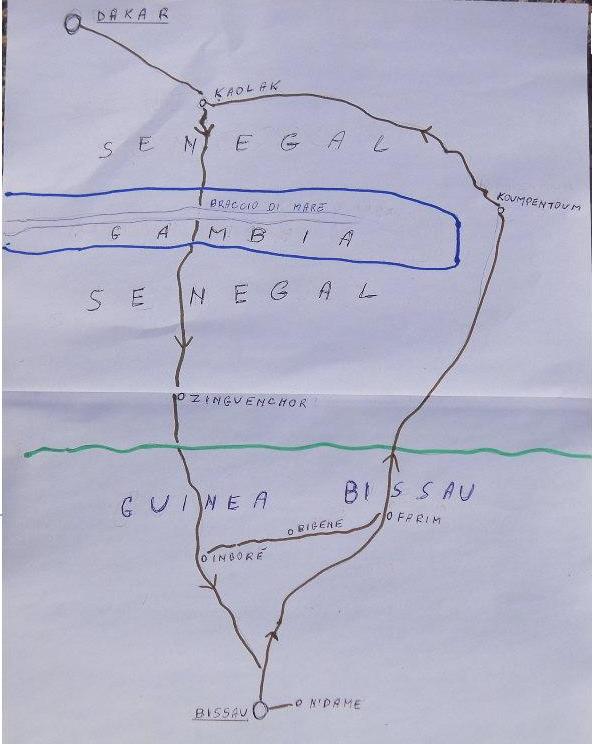 DAKAR
KAOLAK
SENEGAL
KOUMPENTOUM
BRACCIO DI MARE
GAMBIA
SENEGAL
ZINGUENCHOR
GUINEA BISSAU
BIGENE
FARIM
INGORÉ
BISSAU
N'DAME